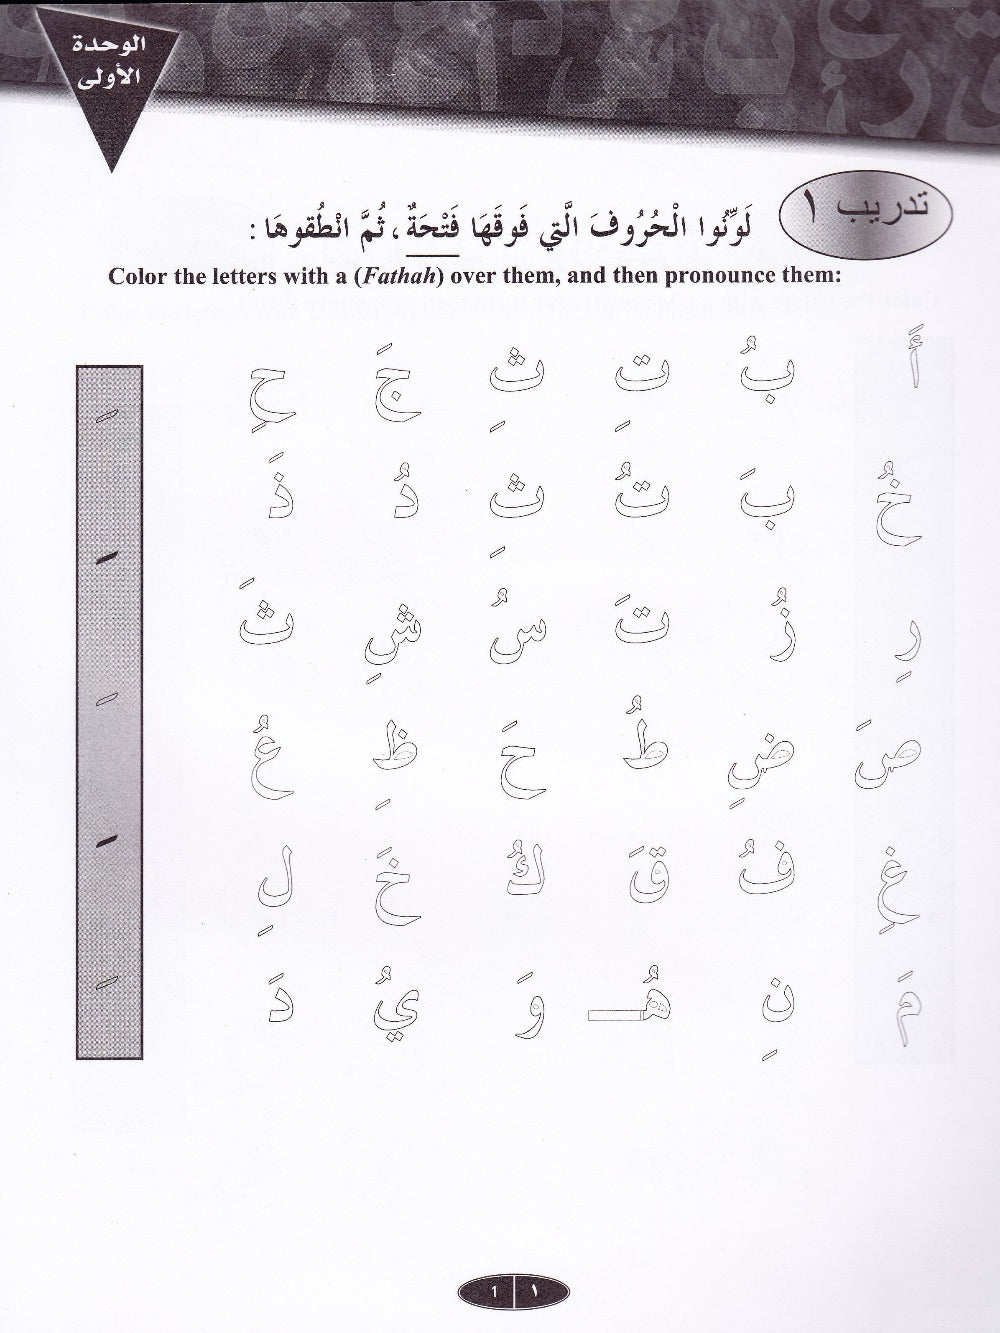 الوحدة
الأولى
تدريب ١
لَوِّنُوا الْحُرُوفَ الَّتِي فَوقَهَا فَتْحَةٌ، ثُمَّ انْطُقوهَا :
Color the letters with a (Fathah) over them, and then pronounce them:
أَ بُ تِ ثِ جَ حِ
خُ بَ تُ ثِ دُ ذَ
رِ زُ تَ سُ شِ ثَ
صَ ضِ طُ حَ ظِ عُ
غِ فُ قَ كُ خَ لِ
مَ نِ هُـ وَ يُ دَ
1 ١